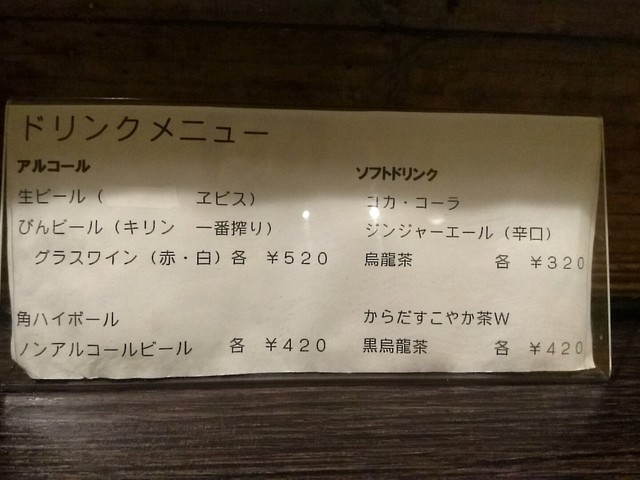 ドリンクメニュー
アルコール
生ビール（　　　　ヱビス）
びんビール（キリン　一番搾り）
グラスワイン（赤・白）各　￥５２０
角ハイボール
ノンアルコールビール　　各　￥４２０
ソフトドリンク
コカ・コーラ
ジンジャーエール（辛口）
烏龍茶　　　　　各　￥３２０
からだすこやか茶Ｗ
黒烏龍茶　　　　各　￥４２０